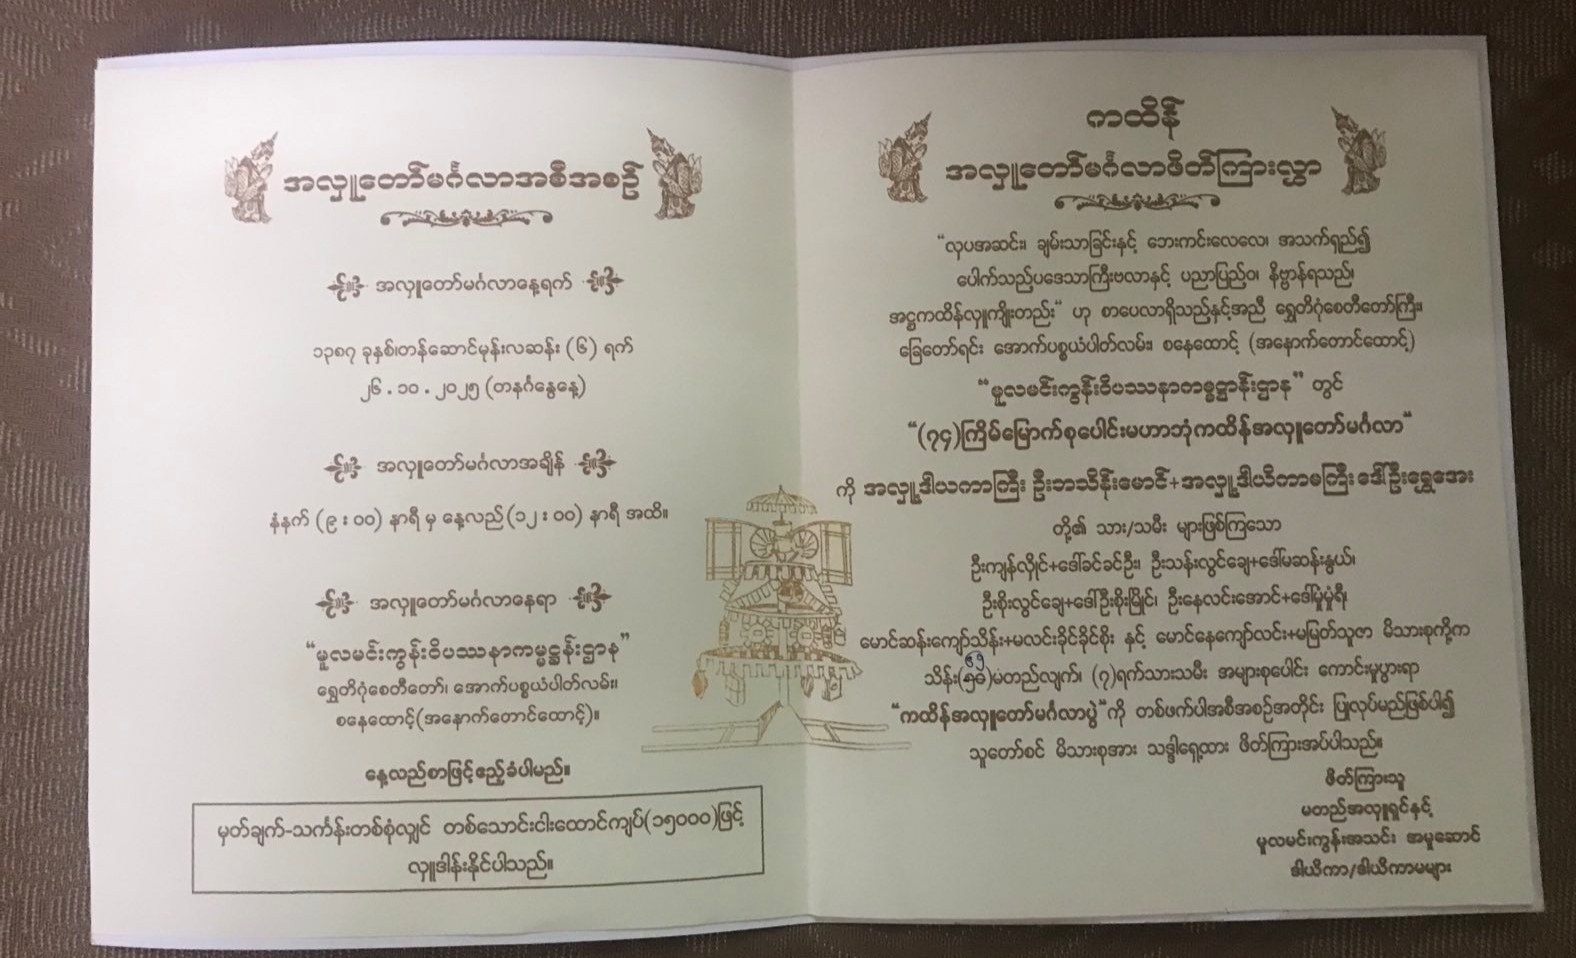 အလှူတော်မင်္ဂလာအစီအစဉ်
အလှူတော်မင်္ဂလာနေ့ရက်
၁၃၈၇ ခုနှစ်၊တန်ဆောင်မုန်းလဆန်း (၆) ရက်
၂၆ . ၁၀ . ၂၀၂၅ (တနင်္ဂနွေနေ့)
အလှူတော်မင်္ဂလာအချိန်
နံနက် (၉ း ၀၀) နာရီ မှ နေ့လည်(၁၂ း ၀၀) နာရီ အထိ။
အလှူတော်မင်္ဂလာနေရာ
“မူလမင်းကွန်းဝိပဿနာကမ္မဋ္ဌန်းဌာန”
ရွှေတိဂုံစေတီတော်၊ အောက်ပစ္စယံပါတ်လမ်း။
စနေထောင့်(အနောက်တောင်ထောင့်)။
နေ့လည်စာဖြင့်ဧည့်ခံပါမည်။
မှတ်ချက်-သင်္ကန်းတစ်စုံလျှင် တစ်သောင်းငါးထောင်ကျပ်(၁၅၀၀၀)ဖြင့်
လှူဒါန်းနိုင်ပါသည်။
ကထိန်
အလှူတော်မင်္ဂလာဖိတ်ကြားလွှာ
“လှပအဆင်း၊ ချမ်းသာခြင်းနှင့် ဘေးကင်းလေလေ၊ အသက်ရှည်၍
ပေါက်သည်ပဒေသာကြီးဗလာနှင့် ပညာပြည့်ဝ၊ နိဗ္ဗာန်ရသည်၊
အဋ္ဌကထိန်လှူကျိုးတည်း“ ဟု စာပေလာရှိသည်နှင့်အညီ ရွှေတိဂုံစေတီတော်ကြီး။
ခြေတော်ရင်း အောက်ပစ္စယံပါတ်လမ်း၊ စနေထောင့် (အနောက်တောင်ထောင့်)
“မူလမင်းကွန်းဝိပဿနာကမ္မဋ္ဌာန်းဌာန” တွင်
“(၇၄)ကြိမ်မြောက်စုပေါင်းမဟာဘုံကထိန်အလှူတော်မင်္ဂလာ“
ကို အလှူ့ဒါယကာကြီး ဦးဘသိန်းမောင်+အလှူ့ဒါယိကာမကြီး ဒေါ်ဦးရွှေအေး
တို့၏ သား/သမီး များဖြစ်ကြသော
ဦးကျန်လှိုင်+ဒေါ်ခင်ခင်ဦး၊ ဦးသန်းလွင်ချေ+ဒေါ်မဆန်းနွယ်၊
ဦးစိုးလွင်ချေ+ဒေါ်ဦးစိုးမြိုင်၊ ဦးနေလင်းအောင်+ဒေါ်မှုံမှုံရီ၊
မောင်ဆန်းကျော်သိန်း+မလင်းခိုင်ခိုင်စိုး နှင့် မောင်နေကျော်လင်း+မမြတ်သူဇာ မိသားစုကို့က
သိန်း( )မတည်လျက်၊ (၇)ရက်သားသမီး အများစုပေါင်း ကောင်းမှုပွားရာ
“ကထိန်အလှူတော်မင်္ဂလာပွဲ“ကို တစ်ဖက်ပါအစီအစဉ်အတိုင်း ပြုလုပ်မည်ဖြစ်ပါ၍
သူတော်စင် မိသားစုအား သဒ္ဒါရှေ့ထား ဖိတ်ကြားအပ်ပါသည်။
ဖိတ်ကြားသူ
မတည်အလှူရှင်နှင့်
မူလမင်းကွန်းအသင်း အမှုဆောင်
ဒါယိကာ/ဒါယိကာမများ